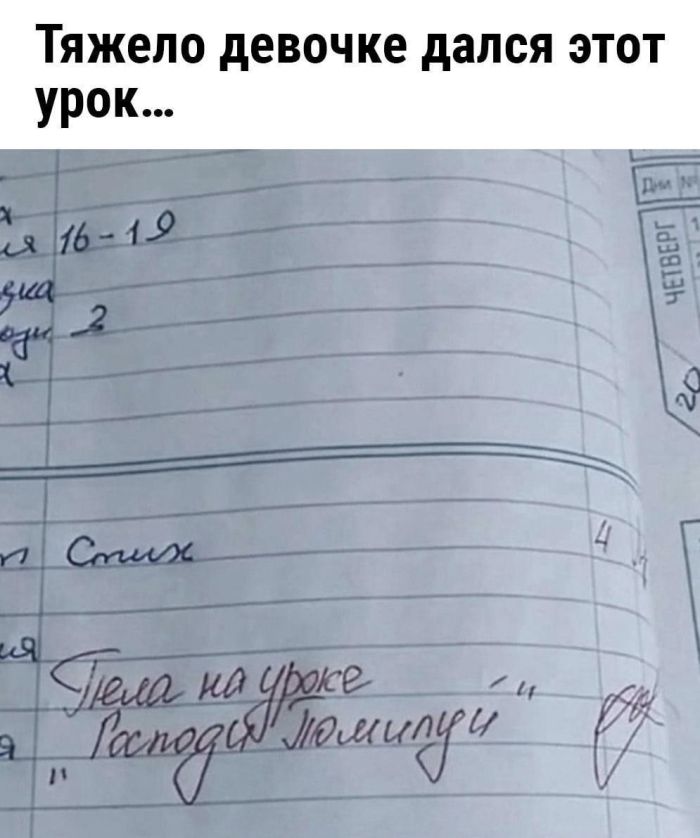 Тяжело девочке дался этот
урок...
Дни №
ЧЕТВЕРГ
20
ия 16-19
2
Стих 4
Пела на уроке
"Господи Помилуй"